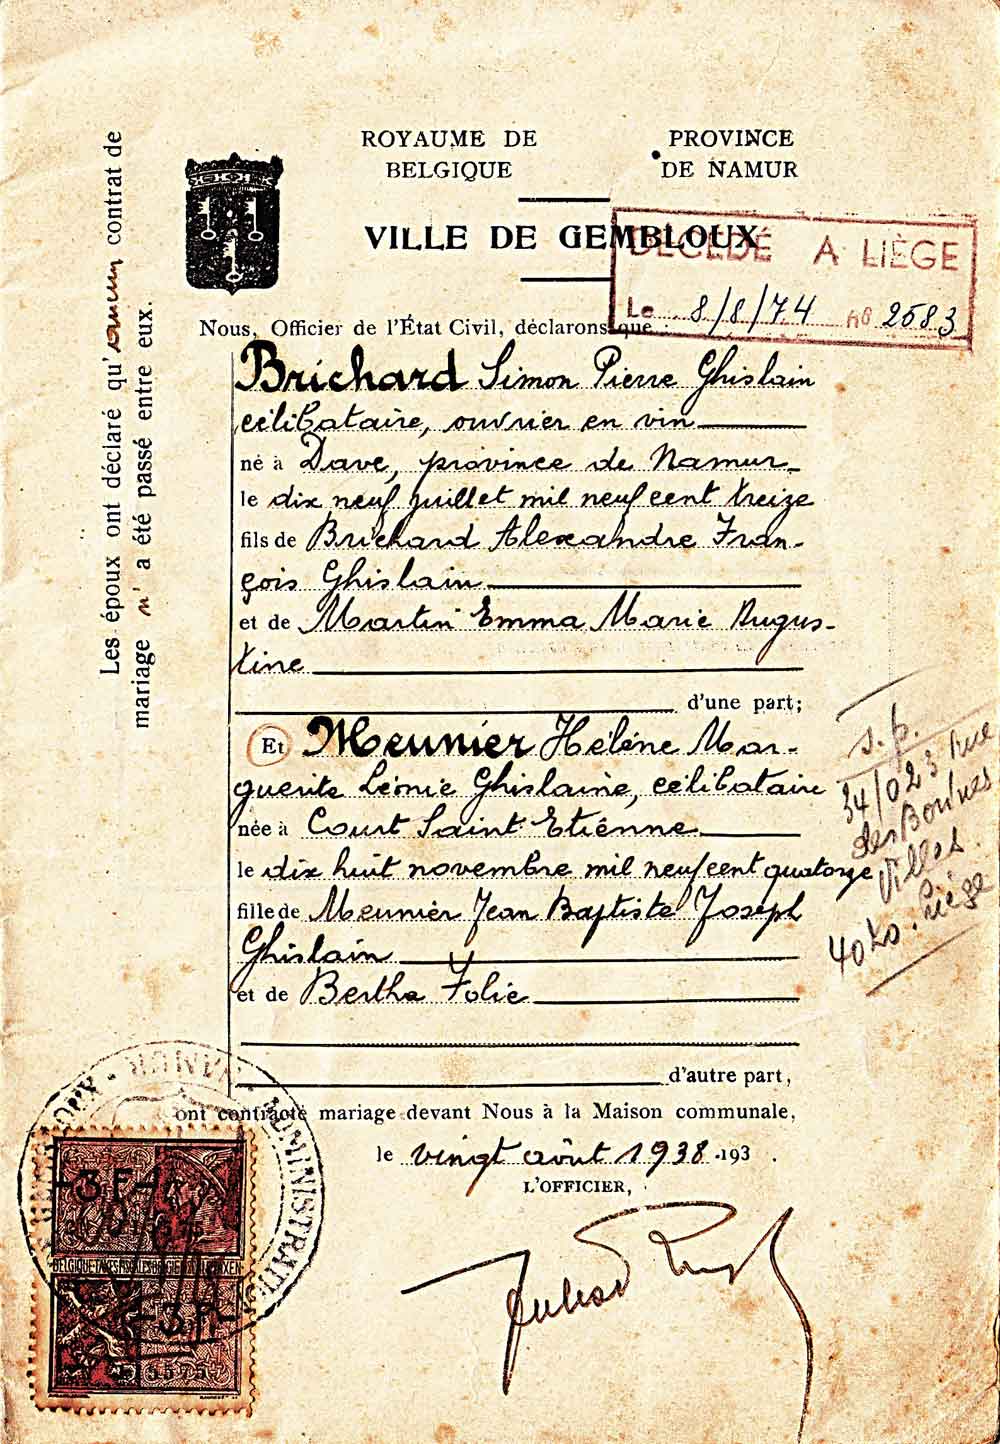 ROYAUME DE
BELGIQUE
PROVINCE
DE NAMUR
VILLE DE GEMBLOUX
DÉCÉDÉ A LIÈGE
Le 8/8/74 no 2583
Les époux ont déclaré qu'aucun contrat de
mariage n'a été passé entre eux.
Nous, Officier de l'État Civil, déclarons que :
Brichard Simon Pierre Ghislain
célibataire, ouvrier en vin
né à Dave, province de Namur
le dix neuf juillet mil neuf cent treize
fils de Brichard Alexandre Fran-
çois Ghislain
et de Martin Emma Marie Augus-
tine
d'une part;
Et Meunier Hélène Mar-
guerite Léonie Ghislaine, célibataire
née à Court Saint Etiénne
le dix huit novembre mil neuf cent quatorze
fille de Meunier Jean Baptiste Joseph
Ghislain
et de Bertha Folie
d'autre part,
s.p.
34/023 rue
des Bonnes
Villes
4020. Liège
ont contracté mariage devant Nous à la Maison communale,
le vingt août 1938 .193 .
L'OFFICIER,
ADMINISTRATION
NAMUR
3 F
BELGIQUE-TAXES FISCALES
3 F